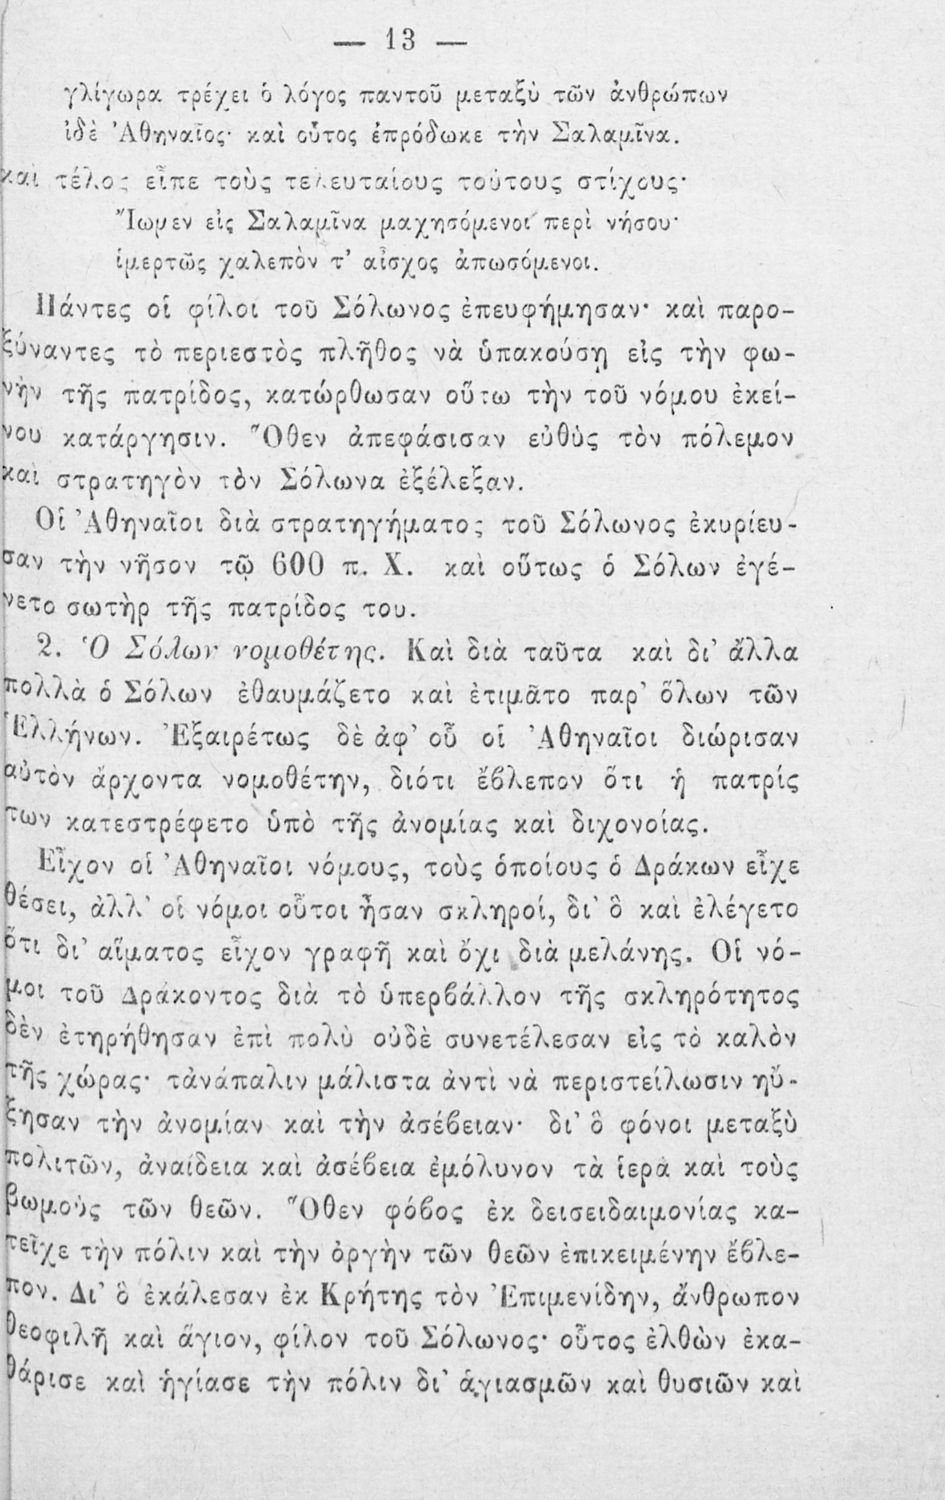 — 13 —
γλίγωρα τρέχει ὁ λόγος παντοῦ μεταξὺ τῶν ἀνθρώπων
ἰδὲ Ἀθηναῖος· καὶ οὗτος ἐπρόδωκε τὴν Σαλαμῖνα.
καὶ τέλος εἶπε τοὺς τελευταίους τούτους στίχους·
Ἴωμεν εἰς Σαλαμῖνα μαχησόμενοι περὶ νήσου·
ἱμερτῶς χαλεπὸν τ' αἶσχος ἀπωσόμενοι.
Πάντες οἱ φίλοι τοῦ Σόλωνος ἐπευφήμησαν· καὶ παρο-
ξύναντες τὸ περιεστὸς πλῆθος νὰ ὑπακούσῃ εἰς τὴν φω-
νὴν τῆς πατρίδος, κατώρθωσαν οὕτω τὴν τοῦ νόμου ἐκεί-
νου κατάργησιν. Ὅθεν ἀπεφάσισαν εὐθὺς τὸν πόλεμον
καὶ στρατηγὸν τὸν Σόλωνα ἐξέλεξαν.
Οἱ Ἀθηναῖοι διὰ στρατηγήματος τοῦ Σόλωνος ἐκυρίευ-
σαν τὴν νῆσον τῷ 600 π. Χ. καὶ οὕτως ὁ Σόλων ἐγέ-
νετο σωτὴρ τῆς πατρίδος του.
2. Ὁ Σόλων νομοθέτης. Καὶ διὰ ταῦτα καὶ δι' ἄλλα
πολλὰ ὁ Σόλων ἐθαυμάζετο καὶ ἐτιμᾶτο παρ' ὅλων τῶν
Ἑλλήνων. Ἐξαιρέτως δὲ ἀφ' οὗ οἱ Ἀθηναῖοι διώρισαν
αὐτὸν ἄρχοντα νομοθέτην, διότι ἔβλεπον ὅτι ἡ πατρίς
των κατεστρέφετο ὑπὸ τῆς ἀνομίας καὶ διχονοίας.
Εἶχον οἱ Ἀθηναῖοι νόμους, τοὺς ὁποίους ὁ Δράκων εἶχε
θέσει, ἀλλ' οἱ νόμοι οὗτοι ἦσαν σκληροί, δι' ὃ καὶ ἐλέγετο
ὅτι δι' αἵματος εἶχον γραφῆ καὶ ὄχι διὰ μελάνης. Οἱ νό-
μοι τοῦ Δράκοντος διὰ τὸ ὑπερβάλλον τῆς σκληρότητος
δὲν ἐτηρήθησαν ἐπὶ πολὺ οὐδὲ συνετέλεσαν εἰς τὸ καλὸν
τῆς χώρας· τἀνάπαλιν μάλιστα ἀντὶ νὰ περιστείλωσιν ηὔ-
ξησαν τὴν ἀνομίαν καὶ τὴν ἀσέβειαν· δι' ὃ φόνοι μεταξὺ
πολιτῶν, ἀναίδεια καὶ ἀσέβεια ἐμόλυνον τὰ ἱερὰ καὶ τοὺς
βωμοὺς τῶν θεῶν. Ὅθεν φόβος ἐκ δεισειδαιμονίας κα-
τεῖχε τὴν πόλιν καὶ τὴν ὀργὴν τῶν θεῶν ἐπικειμένην ἔβλε-
πον. Δι' ὃ ἐκάλεσαν ἐκ Κρήτης τὸν Ἐπιμενίδην, ἄνθρωπον
θεοφιλῆ καὶ ἅγιον, φίλον τοῦ Σόλωνος· οὗτος ἐλθὼν ἐκα-
θάρισε καὶ ἡγίασε τὴν πόλιν δι' ἁγιασμῶν καὶ θυσιῶν καὶ